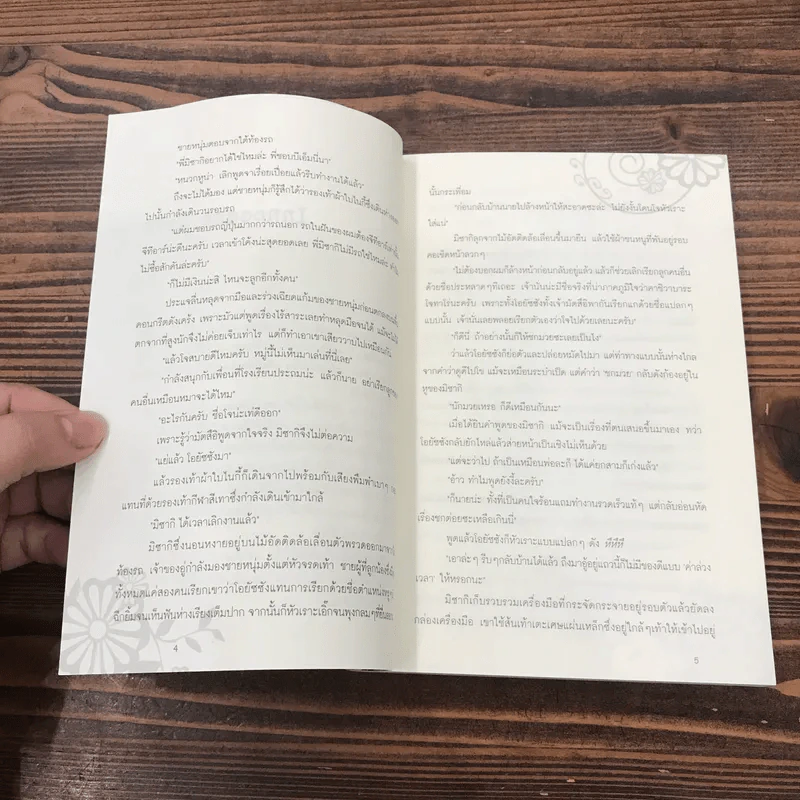 ชายหนุ่มตอบจากใต้ท้องรถ
"พี่มิซากิอยากได้ใช่ไหมล่ะ พี่ชอบบีเอ็มนี่นา"
"หนวกหูน่า เลิกพูดจาเรื่อยเปื่อยแล้วรีบทำงานได้แล้ว"
ถึงจะไม่ได้มอง แต่ชายหนุ่มก็รู้สึกได้ว่ารองเท้าผ้าใบไนกี้ซึ่งเดิน
ไปนั้นกำลังเดินวนรอบรถ
"แต่ผมชอบรถญี่ปุ่นมากกว่ารถนอก รถในฝันของผมต้องจีทีอาร์
จีทีอาร์น่ะดีนะครับ เวลาเข้าโค้งน่ะสุดยอดเลย พี่มิซากิไม่มีรถใช่ไหมล่ะ
ไม่ซื้อสักคันล่ะครับ"
"ก็ไม่มีเงินน่ะสิ ไหนจะลูกอีกทั้งคน"
ประแจลื่นหลุดจากมือและร่วงเฉียดแก้มของชายหนุ่มก่อนตกลง
คอนกรีตดังเคร้ง เพราะมัวแต่พูดเรื่องไร้สาระเลยทำหลุดมือจนได้ แม้จะ
ตกจากที่สูงนักจึงไม่ค่อยเจ็บเท่าไร แต่ก็ทำเอาเขาเสียววาบไปเหมือนกัน
"แล้วโจสบายดีไหมครับ หมู่นี้ไม่เห็นมาเล่นที่นี่เลย"
"กำลังสนุกกับเพื่อนที่โรงเรียนประถมน่ะ แล้วก็นาย อย่าเรียก
คนอื่นเหมือนหมาจะได้ไหม"
"อะไรกันครับ ชื่อโจน่ะเท่ดีออก"
เพราะรู้ว่ามัตสึอิพูดจากใจจริง มิซากิจึงไม่ต่อความ
"แย่แล้ว โอยัชซังมา"
แล้วรองเท้าผ้าใบไนกี้ก็เดินจากไปพร้อมกับเสียงพึมพำเบาๆ
แทนที่ด้วยรองเท้ากีฬาสีเทาซึ่งกำลังเดินเข้ามาใกล้
"มิซากิ ได้เวลาเลิกงานแล้ว"
มิซากิซึ่งนอนหงายอยู่บนไม้อัดติดล้อเลื่อนตัวพรวดออกมาจาก
ท้องรถ เจ้าของอู่กำลังมองชายหนุ่มตั้งแต่หัวจรดเท้า ชายผู้ที่ลูกน้อง
ทั้งหมดแค่สองคนเรียกเขาว่าโอยัชซังแทนการเรียกด้วยชื่อตำแหน่งหรูๆ
ฉีกยิ้มจนเห็นฟันห่างเรียงเต็มปาก จากนั้นก็หัวเราะเอิ๊กจนพุงกลมๆ
4
นั้นกระเพื่อม
"ก่อนกลับบ้านนายไปล้างหน้าให้สะอาดซะล่ะ ไม่ยังงั้นโดนโจหัวเราะ
ใส่แน่"
มิซากิลุกจากไม้อัดติดล้อเลื่อนขึ้นมายืน แล้วใช้ผ้าขนหนูที่พันอยู่รอบ
คอเช็ดหน้าลวกๆ
"ไม่ต้องบอกผมก็ล้างหน้าก่อนกลับอยู่แล้ว แล้วก็ช่วยเลิกเรียกลูกคนอื่น
ด้วยชื่อประหลาดๆทีเถอะ เจ้านั่นน่ะมีชื่อจริงที่น่าภาคภูมิใจว่าคาชิวาบาระ
โจทาโร่นะครับ เพราะทั้งโอยัชซังทั้งเจ้ามัตสึอิพากันเรียกแกด้วยชื่อแปลกๆ
แบบนั้น เจ้านั่นเลยพลอยเรียกตัวเองว่าโจไปด้วยเลยนะครับ"
"ก็ดีนี่ ถ้าอย่างนั้นก็ให้ชกมวยซะเลยเป็นไง"
ว่าแล้วโอยัชซังก็ย่อตัวและปล่อยหมัดไปมา แต่ท่าทางแบบนั้นห่างไกล
จากคำว่าดูดีไปโข แม้จะเหมือนระบำเป็ด แต่คำว่า 'ชกมวย' กลับดังก้องอยู่ใน
หูของมิซากิ
"นักมวยเหรอ ก็ดีเหมือนกันนะ"
เมื่อได้ยินคำพูดของมิซากิ แม้จะเป็นเรื่องที่ตนเสนอขึ้นมาเอง ทว่า
โอยัชซังกลับยักไหล่แล้วส่ายหน้าเป็นเชิงไม่เห็นด้วย
"แต่จะว่าไป ถ้าเป็นเหมือนพ่อละก็ ได้แค่ยกสามก็เก่งแล้ว"
"อ้าว ทำไมพูดยังงี้ละครับ"
"ก็นายน่ะ ทั้งที่เป็นคนใจร้อนแถมทำงานรวดเร็วแท้ๆ แต่กลับอ่อนหัด
เรื่องชกต่อยซะเหลือเกินนี่"
พูดแล้วโอยัชซังก็หัวเราะแบบแปลกๆ ดัง หึหึหึหึ
"เอาล่ะๆ รีบๆกลับบ้านได้แล้ว ถึงมาอู้อยู่แถวนี้ก็ไม่มีของดีแบบ 'ค่าล่วง
เวลา' ให้หรอกนะ"
มิซากิเก็บรวบรวมเครื่องมือที่กระจัดกระจายอยู่รอบตัวแล้วยัดลง
กล่องเครื่องมือ เขาใช้ส้นเท้าเตะเศษแผ่นเหล็กซึ่งอยู่ใกล้ๆเท้าให้เข้าไปอยู่
5